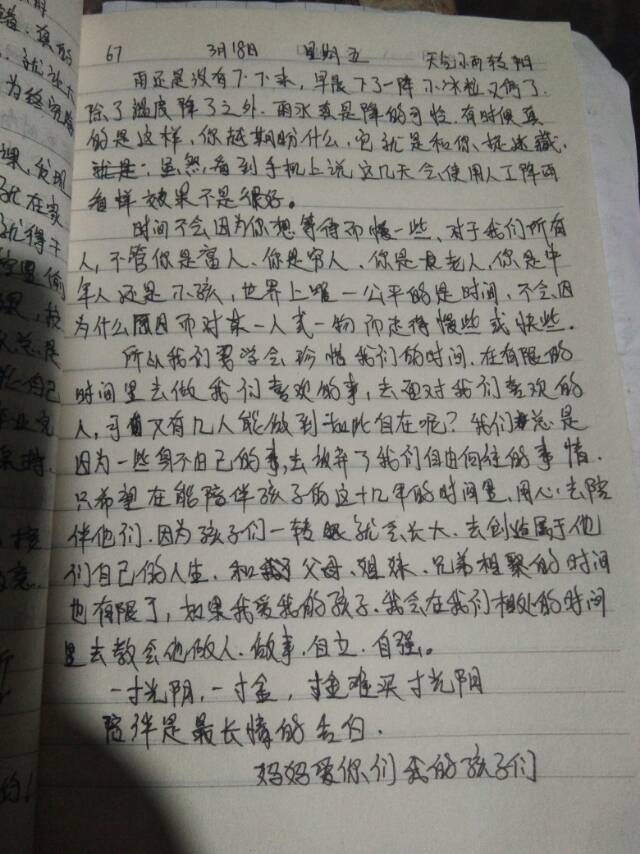 67 3月18日 星期五 天气小雨转阴
雨还是没有下下来,早晨下了一阵小冰粒又停了.
除了温度降了之外.雨水真是降的可怜.有时候真
的是这样,你越期盼什么,它就是和你捉迷藏.
就是:虽然,看到手机上说这几天会使用人工降雨
看样效果不是很好。
时间不会因为你想等待而慢一些、对于我们所有
人,不管你是富人、你是穷人、你是老人,你是中
年人还是小孩,世界上唯一公平的是时间、不会因
为什么原因而对某一人或一物而走得慢些或快些.
所以我们要学会珍惜我们的时间.在有限的
时间里去做我们喜欢的事,去面对我们喜欢的
人,可又有几人能做到如此自在呢?我们总是
因为一些身不由己的事,去放弃了我们自由向往的事情.
只希望在能陪伴孩子的这十几年的时间里,用心去陪
伴他们.因为孩子们一转眼就会长大.去创造属于他
们自己的人生.和父母、姐妹、兄弟相聚的时间
也有限了,如果我爱我的孩子.我会在我们相处的时间
里去教会他做人.做事.自立.自强。
一寸光阴,一寸金,寸金难买寸光阴
陪伴是最长情的告白.
妈妈爱你们我的孩子们